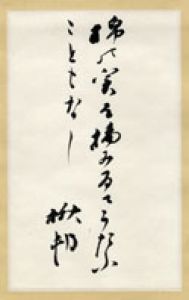 棉の実を摘みゐてうたふ
こともなし
楸邨